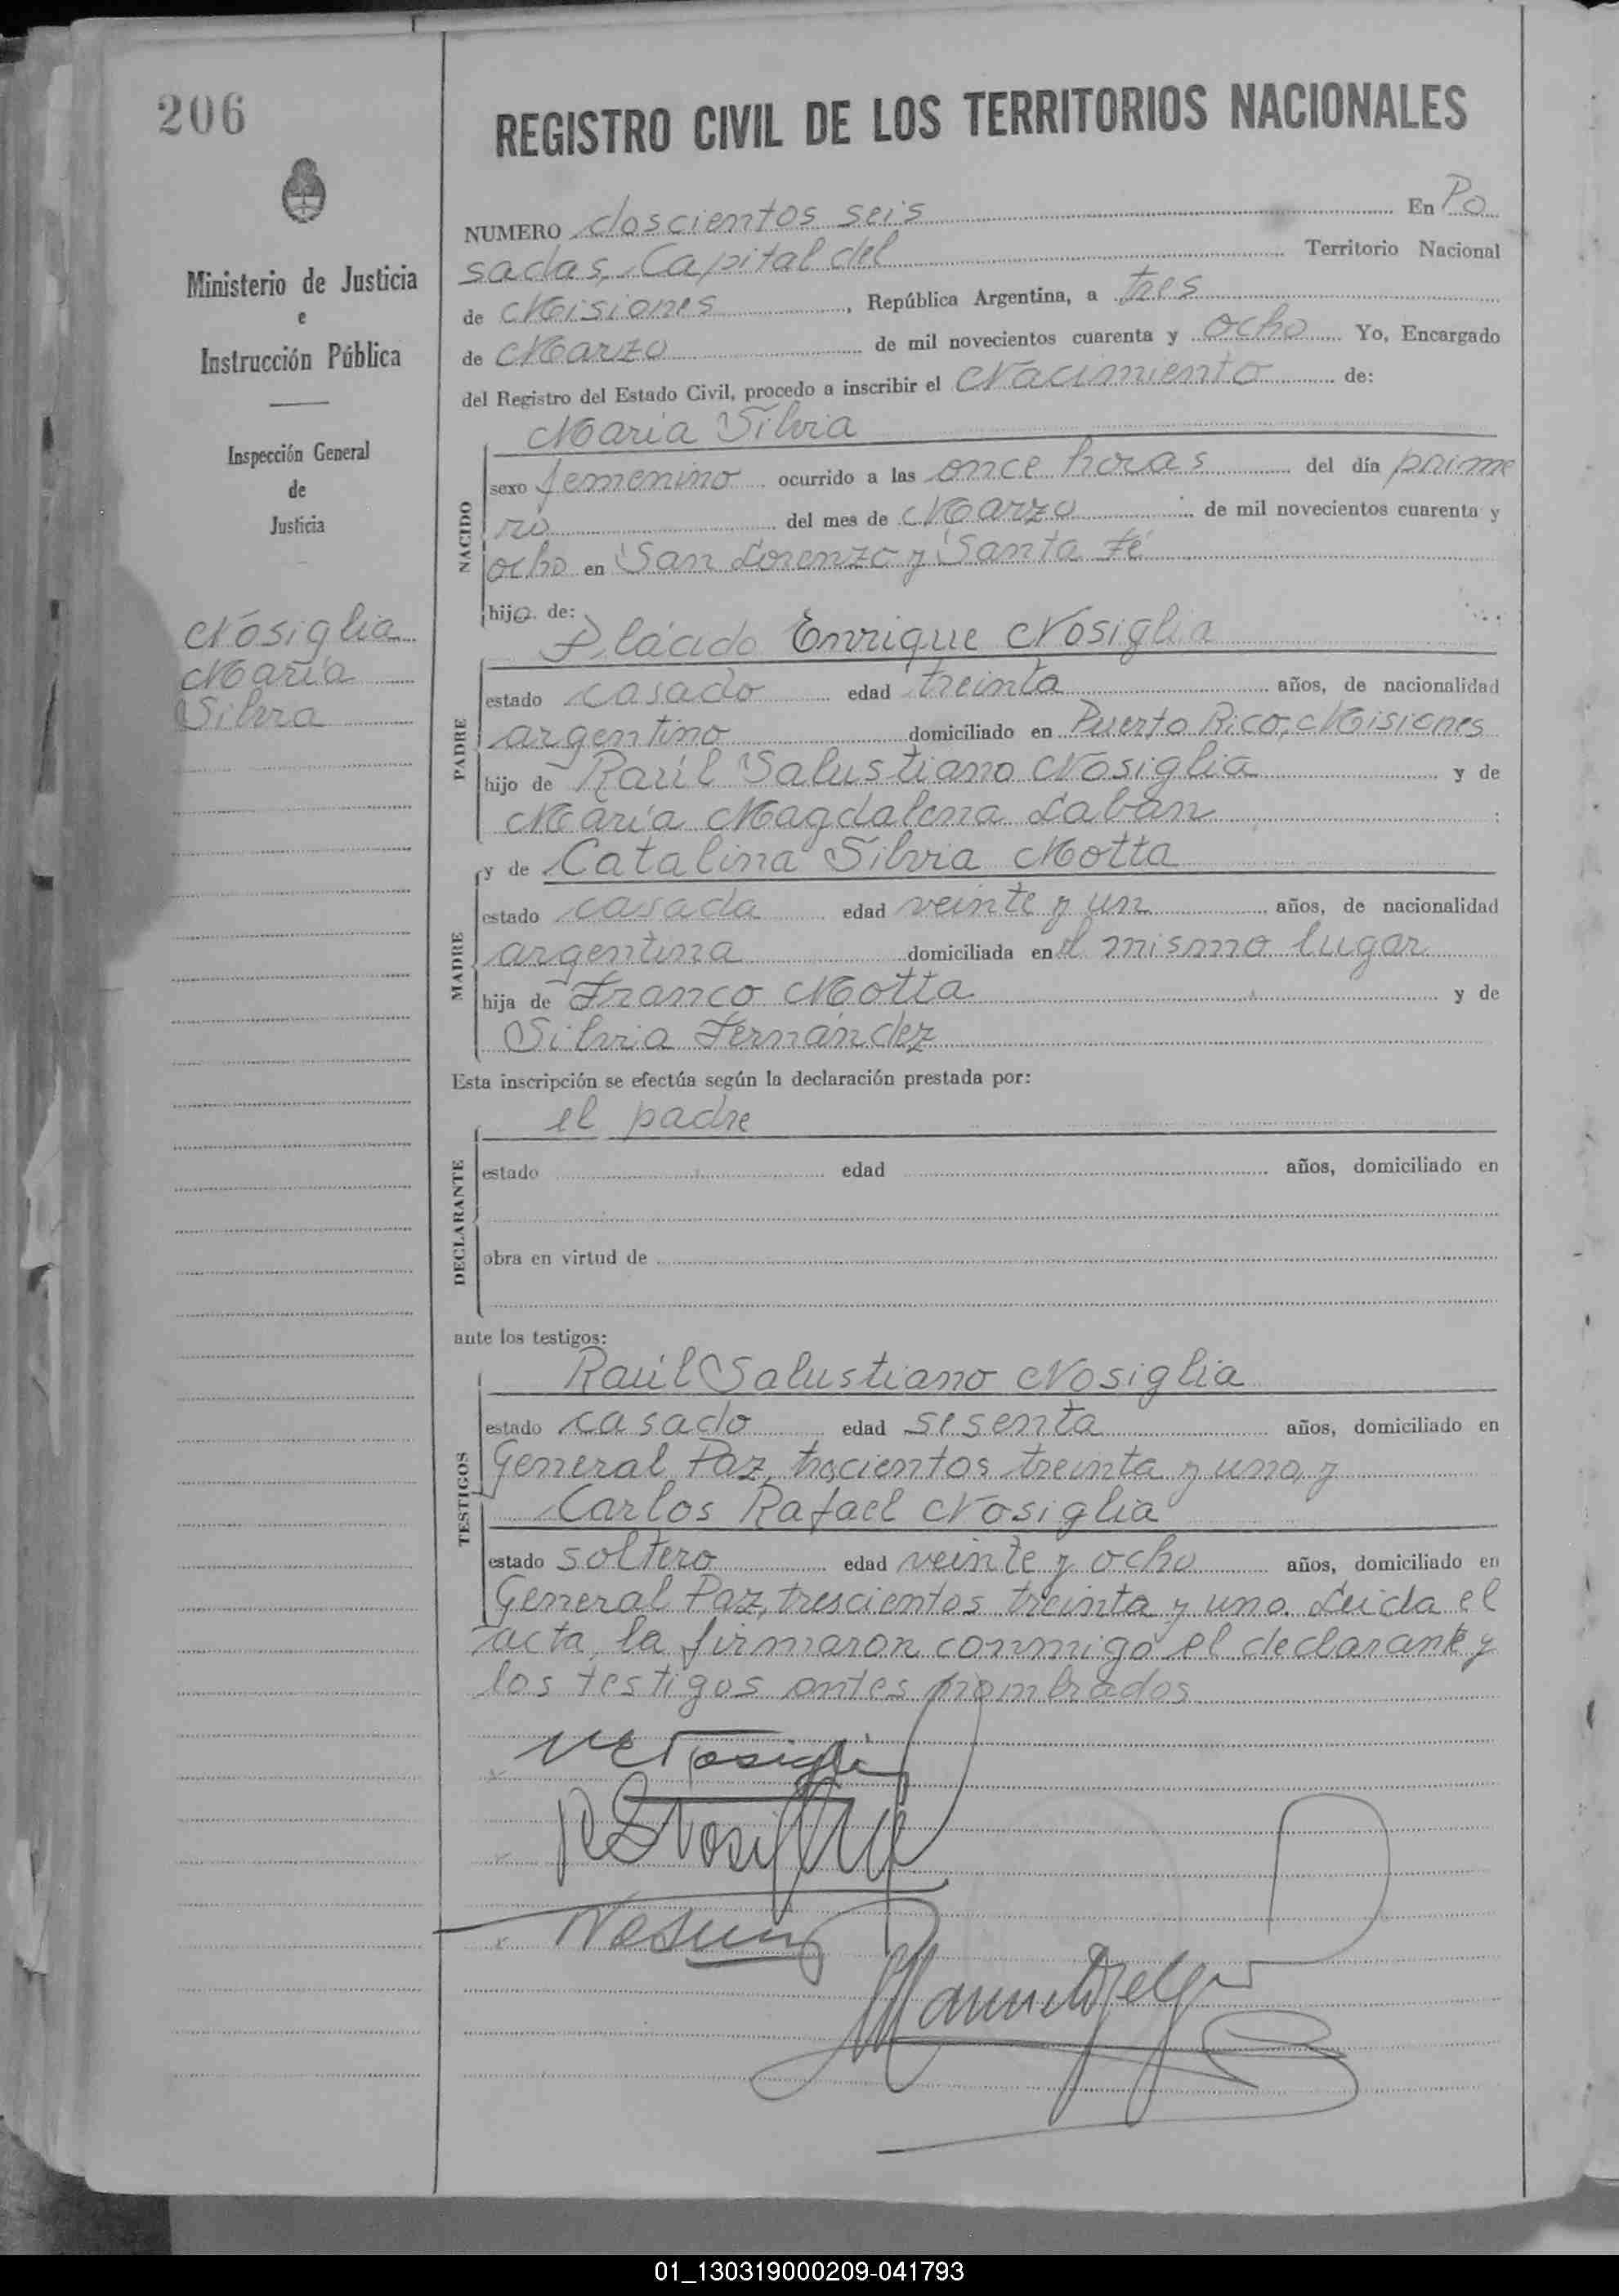 206
REGISTRO CIVIL DE LOS TERRITORIOS NACIONALES
Ministerio de Justicia
e
Instrucción Pública
Inspección General
de
Justicia
Nosiglia
María
Silvia
NUMERO doscientos seis En Po
sadas, Capital del Territorio Nacional
de Misiones, República Argentina, a tres
de Marzo de mil novecientos cuarenta y ocho Yo, Encargado
del Registro del Estado Civil, procedo a inscribir el Nacimiento de:
NACIDO
María Silvia
sexo femenino ocurrido a las once horas del día prime
ro del mes de Marzo de mil novecientos cuarenta y
ocho en San Lorenzo y Santa Fé
hija de:
PADRE
Plácido Enrique Nosiglia
estado casado edad treinta años, de nacionalidad
argentino domiciliado en Puerto Rico, Misiones
hijo de Raúl Salustiano Nosiglia y de
María Magdalena Laban
MADRE
y de Catalina Silvia Motta
estado casada edad veinte y un años, de nacionalidad
argentina domiciliada en el mismo lugar
hija de Franco Motta y de
Silvia Fernández
Esta inscripción se efectúa según la declaración prestada por:
DECLARANTE
el padre
estado edad años, domiciliado en
obra en virtud de
ante los testigos:
TESTIGOS
Raúl Salustiano Nosiglia
estado casado edad sesenta años, domiciliado en
General Paz, trscientos treinta y uno, y
Carlos Rafael Nosiglia
estado soltero edad veinte y ocho años, domiciliado en
General Paz, trescientos treinta y uno. Leida el
acta, la firmaron conmigo el declarante y
los testigos antes nombrados
01_130319000209-041793